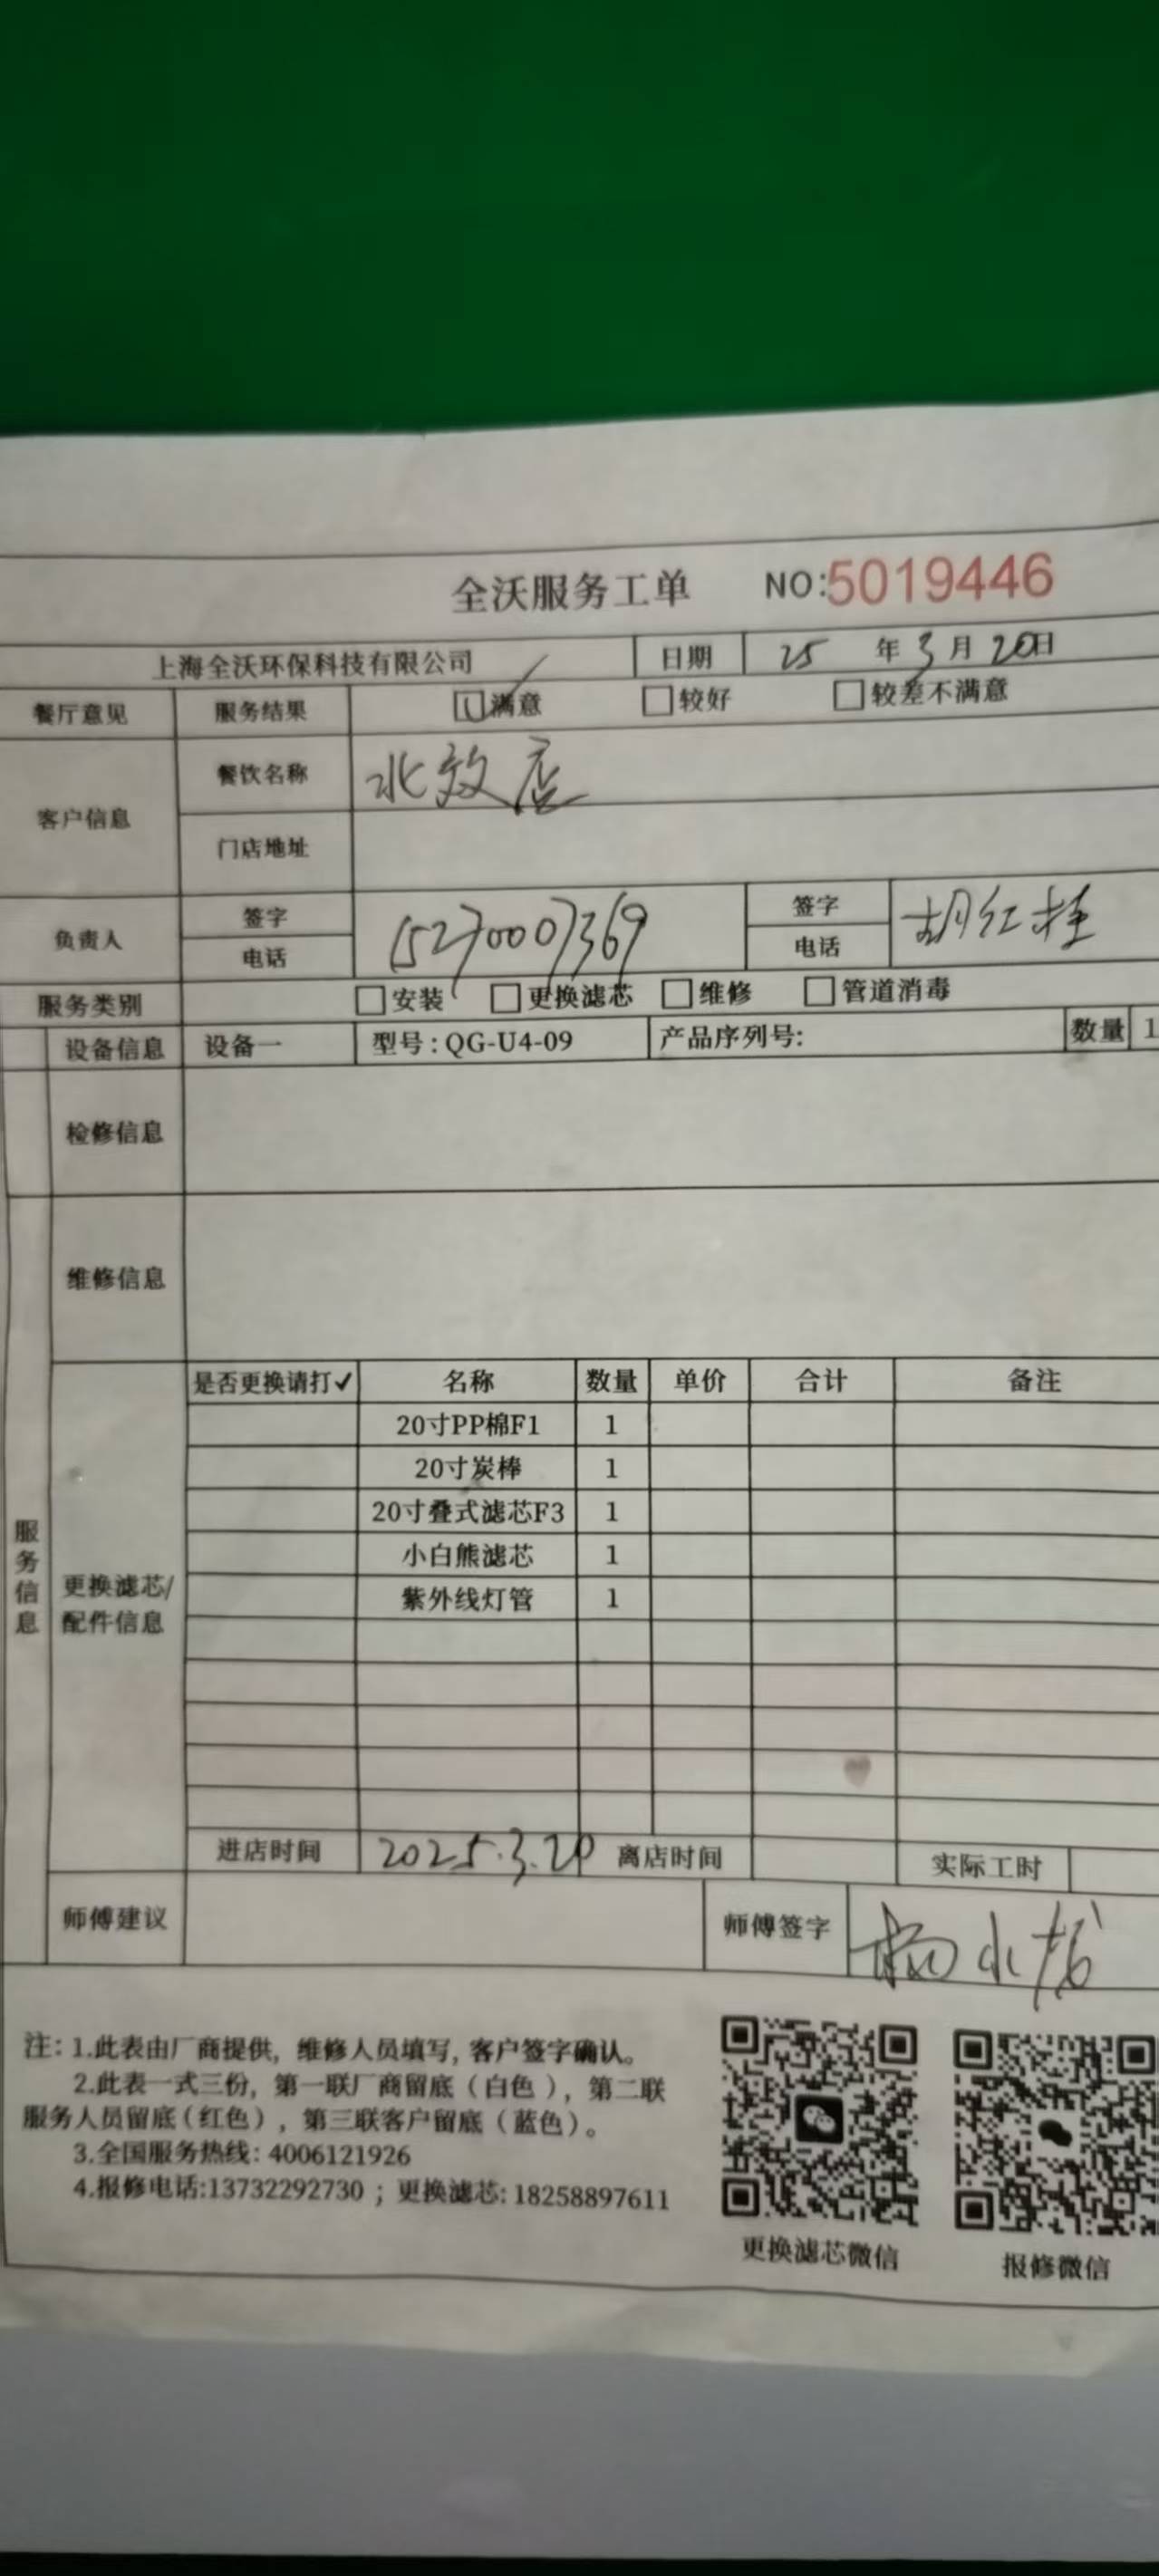 全沃服务工单 NO:5019446
上海全沃环保科技有限公司 日期 25 年 3 月 20日
餐厅意见 服务结果 ☑满意 □较好 □较差不满意
客户信息 餐饮名称 北效店
门店地址
负责人 签字 电话 15270007369 签字 电话 胡红桂
服务类别 □安装 □更换滤芯 □维修 □管道消毒
设备信息 设备一 型号：QG-U4-09 产品序列号: 数量 1
检修信息
维修信息
服务信息
更换滤芯/配件信息
是否更换请打✓ 名称 数量 单价 合计 备注
20寸PP棉F1 1
20寸炭棒 1
20寸叠式滤芯F3 1
小白熊滤芯 1
紫外线灯管 1
进店时间 2025.3.20 离店时间 实际工时
师傅建议 师傅签字
注：1.此表由厂商提供，维修人员填写，客户签字确认。
2.此表一式三份，第一联厂商留底（白色），第二联
服务人员留底（红色），第三联客户留底（蓝色）。
3.全国服务热线：4006121926
4.报修电话:13732292730；更换滤芯：18258897611
更换滤芯微信 报修微信